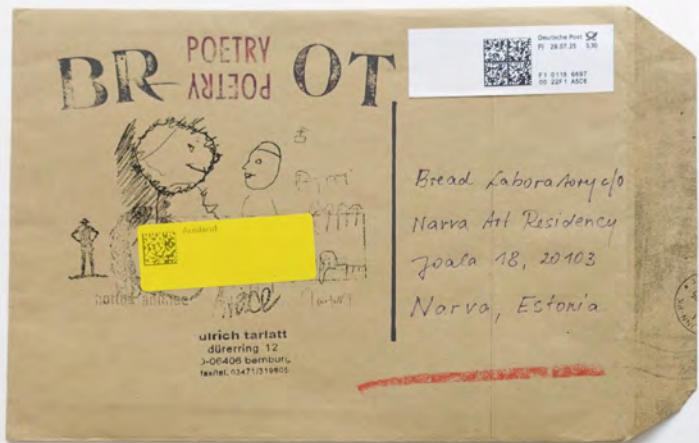 POETRY
BR OT
POETRY
Deutsche Post
FJ 28.07.25 5,30
F1 0118 6697
00 22F1 A5C6
Bread Laboratory c/o
Narva Art Residency
Joala 18, 20103
Narva, Estonia
ulrich tarlatt
dürerring 12
D-06406 bernburg
fax/tel. 03471/319805